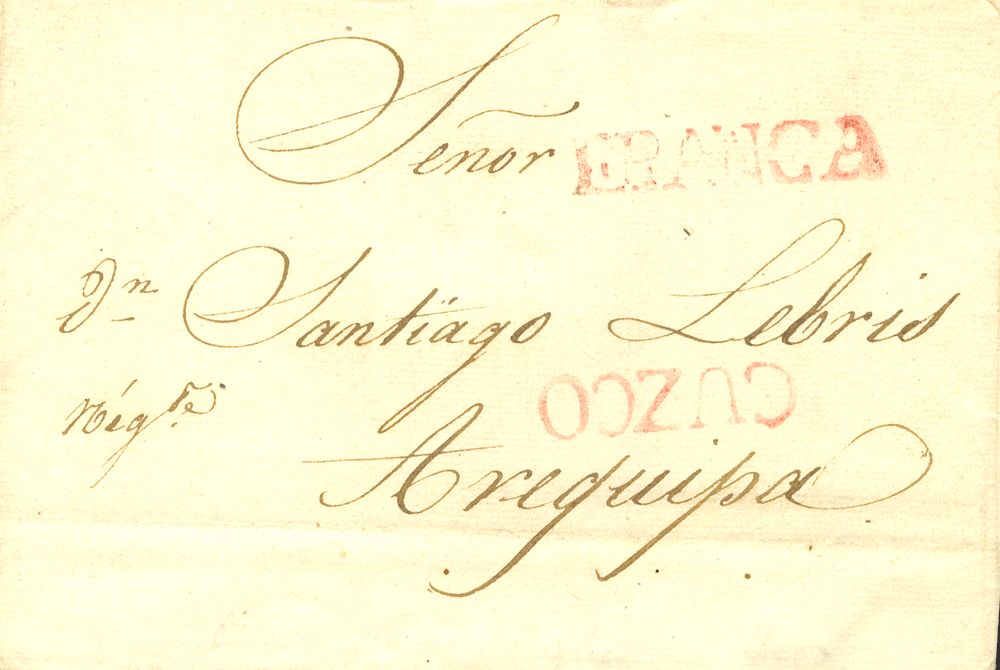 Señor
FRANCA
Dn Santiago Lebris
Négte
CUZCO
Arequipa